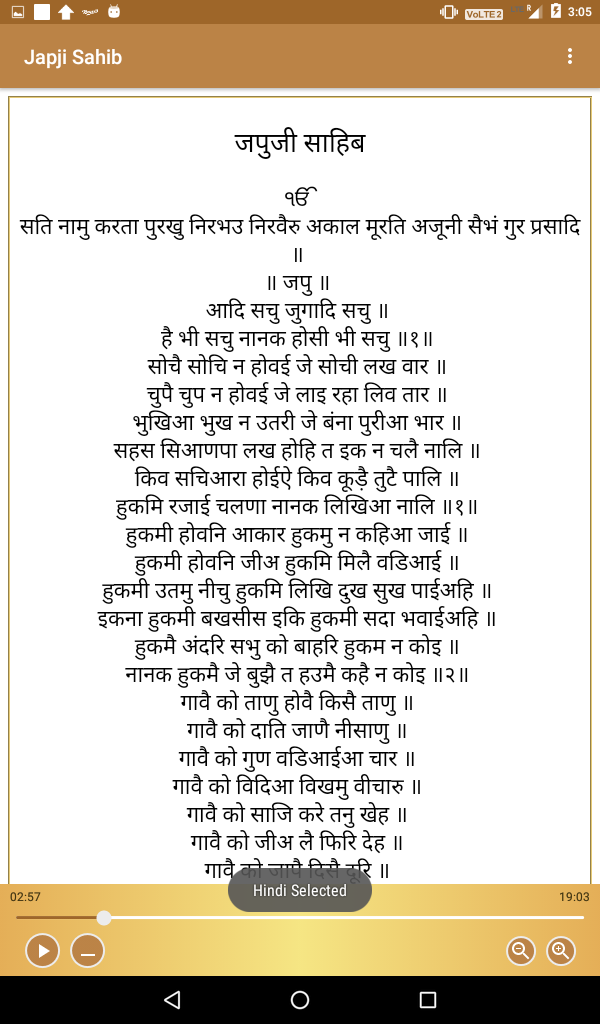 VoLTE 2
R
3:05
Japji Sahib
जपुजी साहिब
ੴ
सति नामु करता पुरखु निरभउ निरवैरु अकाल मूरति अजूनी सैभं गुर प्रसादि
॥
॥ जपु ॥
आदि सचु जुगादि सचु ॥
है भी सचु नानक होसी भी सचु ॥१॥
सोचै सोचि न होवई जे सोची लख वार ॥
चुपै चुप न होवई जे लाइ रहा लिव तार ॥
भुखिआ भुख न उतरी जे बंना पुरीआ भार ॥
सहस सिआणपा लख होहि त इक न चलै नालि ॥
किव सचिआरा होईऐ किव कूड़ै तुटै पालि ॥
हुकमि रजाई चलणा नानक लिखिआ नालि ॥१॥
हुकमी होवनि आकार हुकमु न कहिआ जाई ॥
हुकमी होवनि जीअ हुकमि मिलै वडिआई ॥
हुकमी उतमु नीचु हुकमि लिखि दुख सुख पाईअहि ॥
इकना हुकमी बखसीस इकि हुकमी सदा भवाईअहि ॥
हुकमै अंदरि सभु को बाहरि हुकम न कोइ ॥
नानक हुकमै जे बुझै त हउमै कहै न कोइ ॥२॥
गावै को ताणु होवै किसै ताणु ॥
गावै को दाति जाणै नीसाणु ॥
गावै को गुण वडिआईआ चार ॥
गावै को विदिआ विखमु वीचारु ॥
गावै को साजि करे तनु खेह ॥
गावै को जीअ लै फिरि देह ॥
गावै को जापै दिसै दूरि ॥
Hindi Selected
02:57
19:03